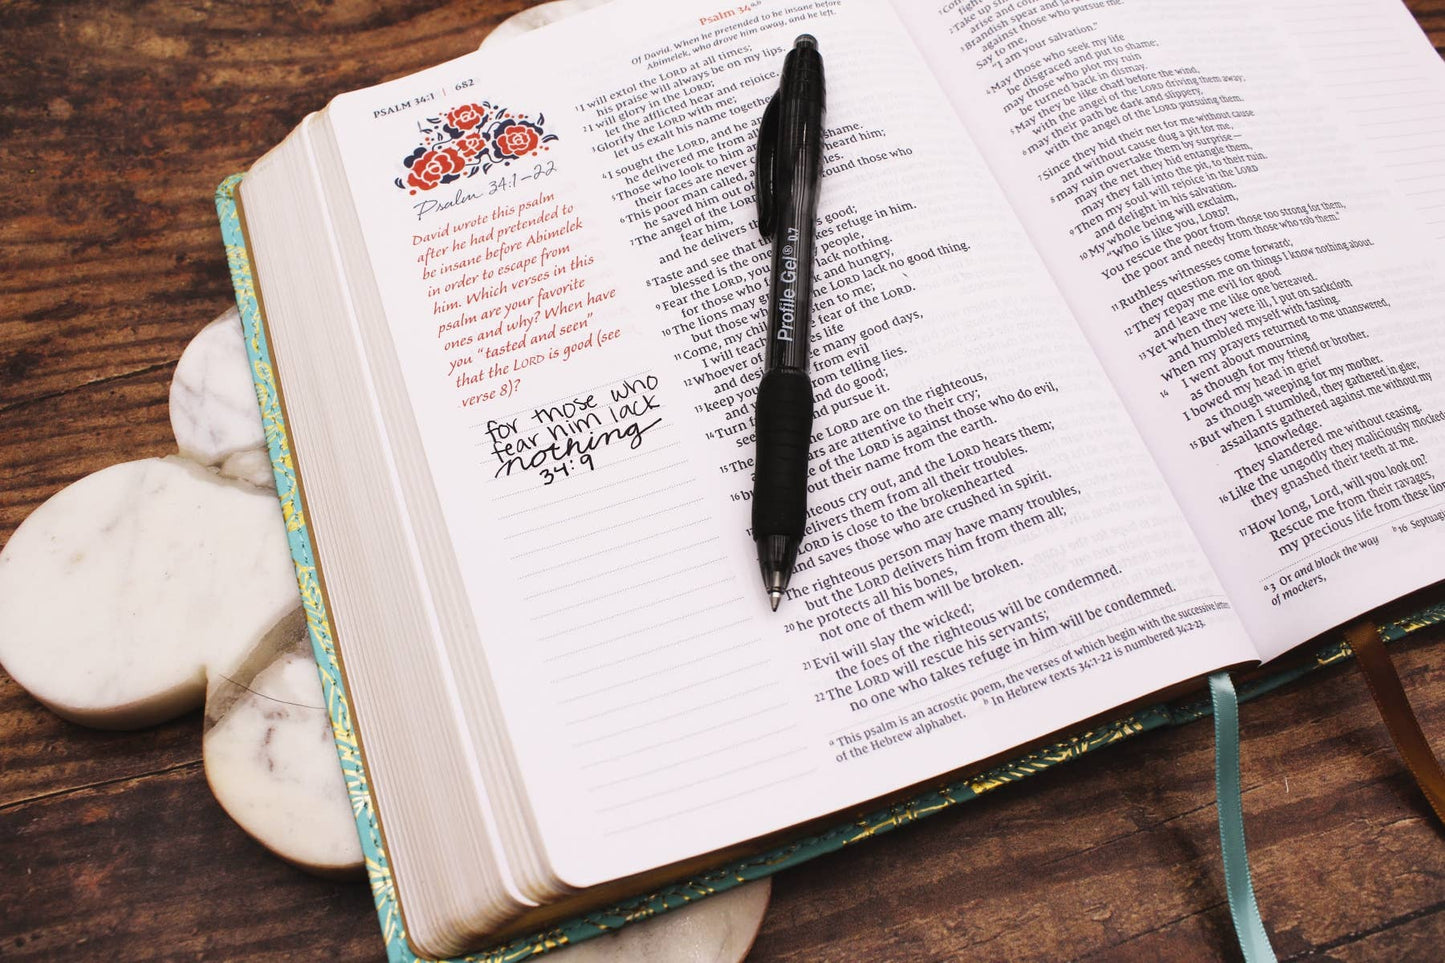 PSALM 34:1 | 682
Psalm 34:1–22
David wrote this psalm
after he had pretended to
be insane before Abimelek
in order to escape from
him. Which verses in this
psalm are your favorite
ones and why? When have
you “tasted and seen”
that the LORD is good (see
verse 8)?
for those who
fear him lack
nothing
34:9
Psalm 34 a,b
Of David. When he pretended to be insane before
Abimelek, who drove him away, and he left.
1 I will extol the LORD at all times;
his praise will always be on my lips.
2 I will glory in the LORD;
let the afflicted hear and rejoice.
3 Glorify the LORD with me;
let us exalt his name together.
4 I sought the LORD, and he
he delivered me from all
5 Those who look to him
shame.
their faces are never
6 This poor man called,
heard him;
he saved him out of
7 The angel of the LORD
round those who
fear him,
and he delivers
8 Taste and see that
good;
blessed is the one
refuge in him.
9 Fear the LORD, you
people,
for those who
lack nothing.
10 The lions may
and hungry,
but those who
LORD lack no good thing.
11 Come, my
listen to me;
I will teach
fear of the LORD.
12 Whoever of
life
and
many good days,
13 keep your
from evil
and
from telling lies.
14 Turn
and do good;
and pursue it.
15 The
LORD are on the righteous,
are attentive to their cry;
16 of the LORD is against those who do evil,
out their name from the earth.
cry out, and the LORD hears them;
delivers them from all their troubles.
LORD is close to the brokenhearted
and saves those who are crushed in spirit.
The righteous person may have many troubles,
but the LORD delivers him from them all;
20 he protects all his bones,
not one of them will be broken.
21 Evil will slay the wicked;
the foes of the righteous will be condemned.
22 The LORD will rescue his servants;
no one who takes refuge in him will be condemned.
a This psalm is an acrostic poem, the verses of which begin with the successive letters
of the Hebrew alphabet. b In Hebrew texts 34:1-22 is numbered 34:2-23.
Profile Gel® 0.7
2 Take up
arise and come
3 Brandish spear and
against those who pursue me.
Say to me,
“I am your salvation.”
4 May those who seek my life
be disgraced and put to shame;
may those who plot my ruin
be turned back in dismay.
5 May they be like chaff before the wind,
with the angel of the LORD driving them away;
6 may their path be dark and slippery,
with the angel of the LORD pursuing them.
7 Since they hid their net for me without cause
and without cause dug a pit for me,
8 may ruin overtake them by surprise—
may the net they hid entangle them,
may they fall into the pit, to their ruin.
9 Then my soul will rejoice in the LORD
and delight in his salvation.
10 My whole being will exclaim,
“Who is like you, LORD?
You rescue the poor from those too strong for them,
the poor and needy from those who rob them.”
11 Ruthless witnesses come forward;
they question me on things I know nothing about.
12 They repay me evil for good
and leave me like one bereaved.
13 Yet when they were ill, I put on sackcloth
and humbled myself with fasting.
When my prayers returned to me unanswered,
14 I went about mourning
as though for my friend or brother.
I bowed my head in grief
as though weeping for my mother.
15 But when I stumbled, they gathered in glee;
assailants gathered against me without my
knowledge.
They slandered me without ceasing.
16 Like the ungodly they maliciously mocked
they gnashed their teeth at me.
17 How long, Lord, will you look on?
Rescue me from their ravages,
my precious life from these lions
a 3 Or and block the way b 16
of mockers,